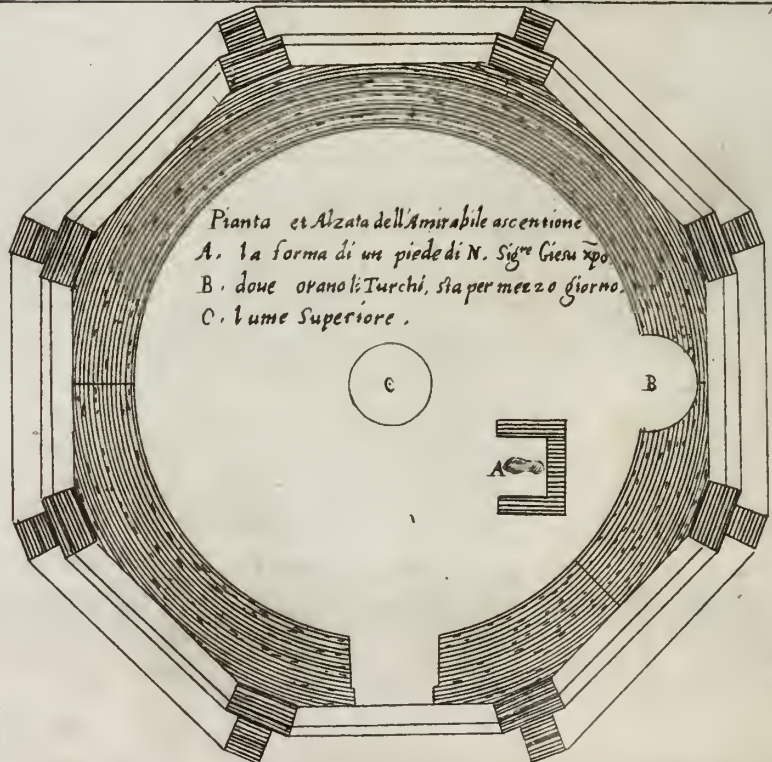 Pianta et Alzata dell'Amirabile ascentione
A. la forma di un piede di N. Sig^re Giesu x̄po
B. doue orano li Turchi, sta per mezzo giorno.
C. lume Superiore.
C
B
A